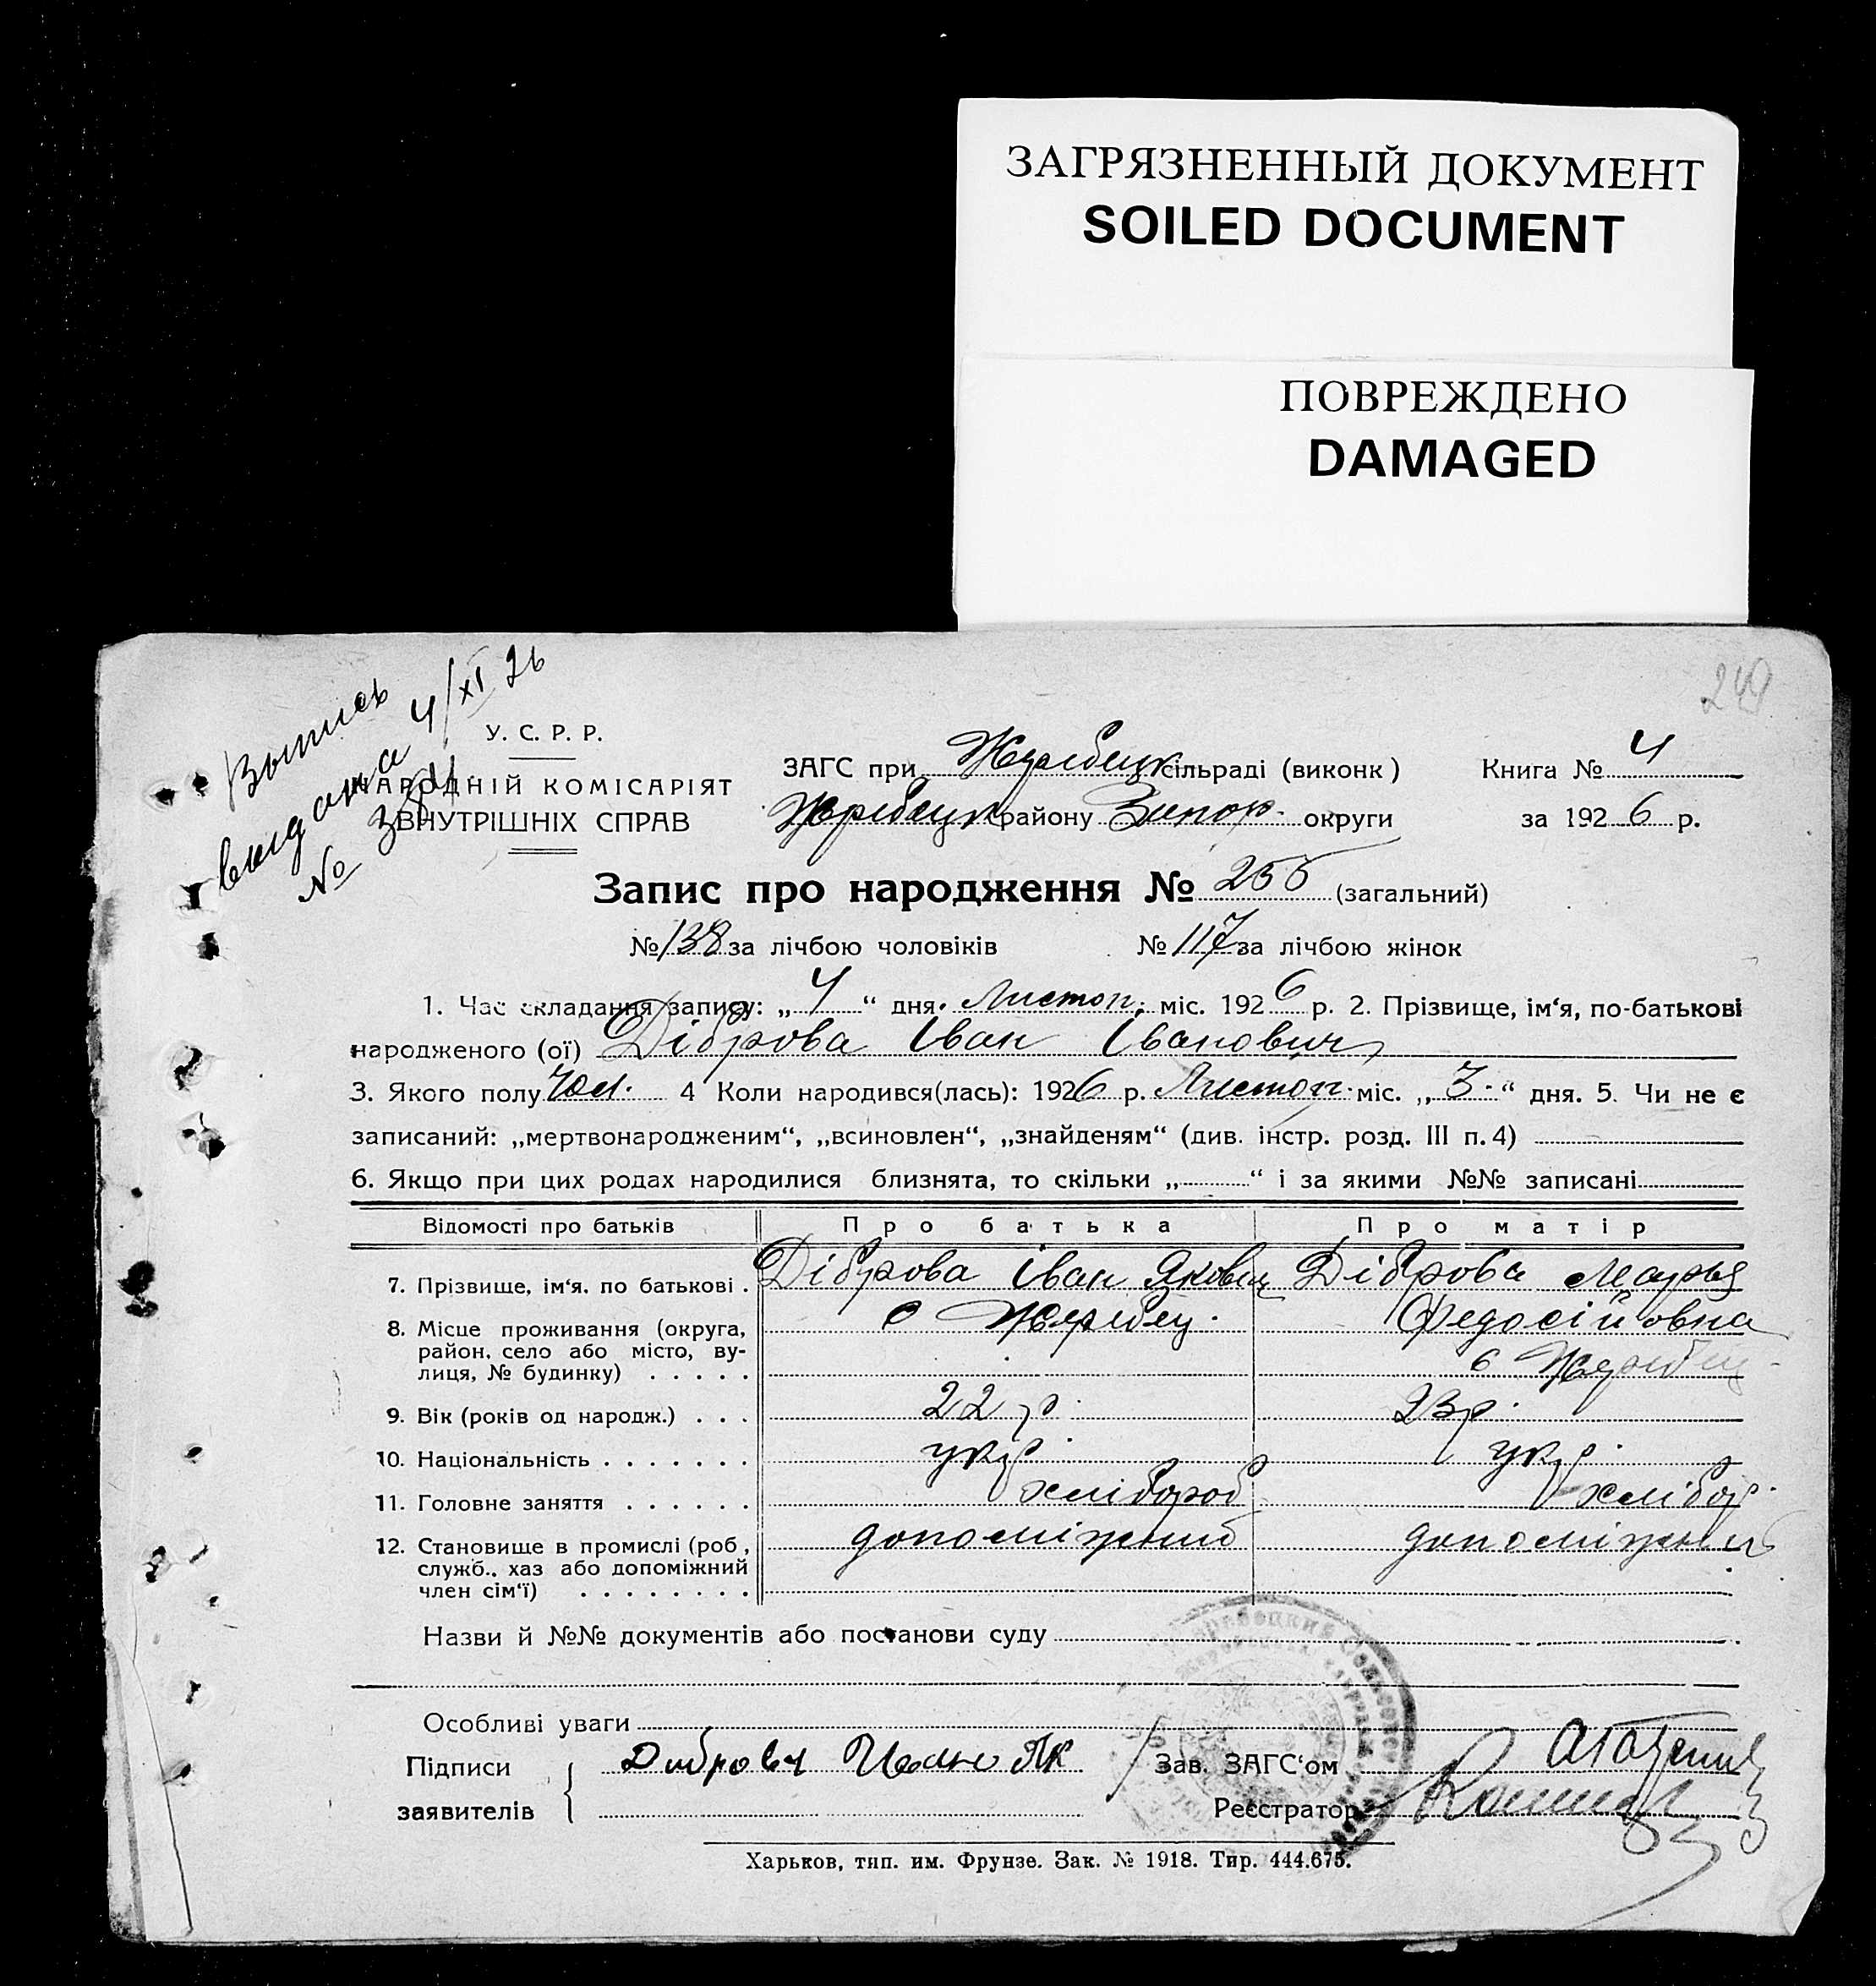 ЗАГРЯЗНЕННЫЙ ДОКУМЕНТ
SOILED DOCUMENT
ПОВРЕЖДЕНО
DAMAGED
249
Выпись
видана 4/XI 26
№
У. С. Р. Р.
НАРОДНІЙ КОМІСАРІЯТ
ВНУТРІШНІХ СПРАВ
ЗАГС при Жеребецк сільраді (виконк) Книга № 4
Жеребецк району Запор. округи за 1926 р.
Запис про народження № 255 (загальний)
№ 138 за лічбою чоловіків № 117 за лічбою жінок
1. Час складання запису: „4“ дня. Листоп. міс. 1926 р. 2. Прізвище, ім‘я, по-батькові
народженого (ої) Діброва Іван Іванович
3. Якого полу Чол. 4 Коли народився(лась): 1926 р. Листоп. міс. „3.“ дня. 5. Чи не є
записаний: „мертвонародженим“, „всиновлен“, „знайденям“ (див. інстр. розд. III п. 4)
6. Якщо при цих родах народилися близнята, то скільки „ “ і за якими №№ записані
Відомості про батьків Про батька Про матір
7. Прізвище, ім‘я. по батькові . Діброва Іван Якович Діброва Марья
Федосіиовна
8. Місце проживання (округа, с Жеребец.
район, село або місто, ву- с Жеребец
лиця, № будинку) . . . . .
9. Вік (років од народж.) . . . 22 р. 23 р.
10. Національність . . . . . . . укр. укр.
11. Головне заняття . . . . . . хлібороб хлібор.
12. Становище в промислі (роб, допоміжний допоміжний
служб., хаз або допоміжний
член сім‘ї) . . . . . . . .
Назви й №№ документів або постанови суду
Особливі уваги
Підписи Диброва Иван Як Зав. ЗАГС‘ом
заявителів Реєстратор
Харьков, тип. им. Фрунзе. Зак. № 1918. Тир. 444.675.